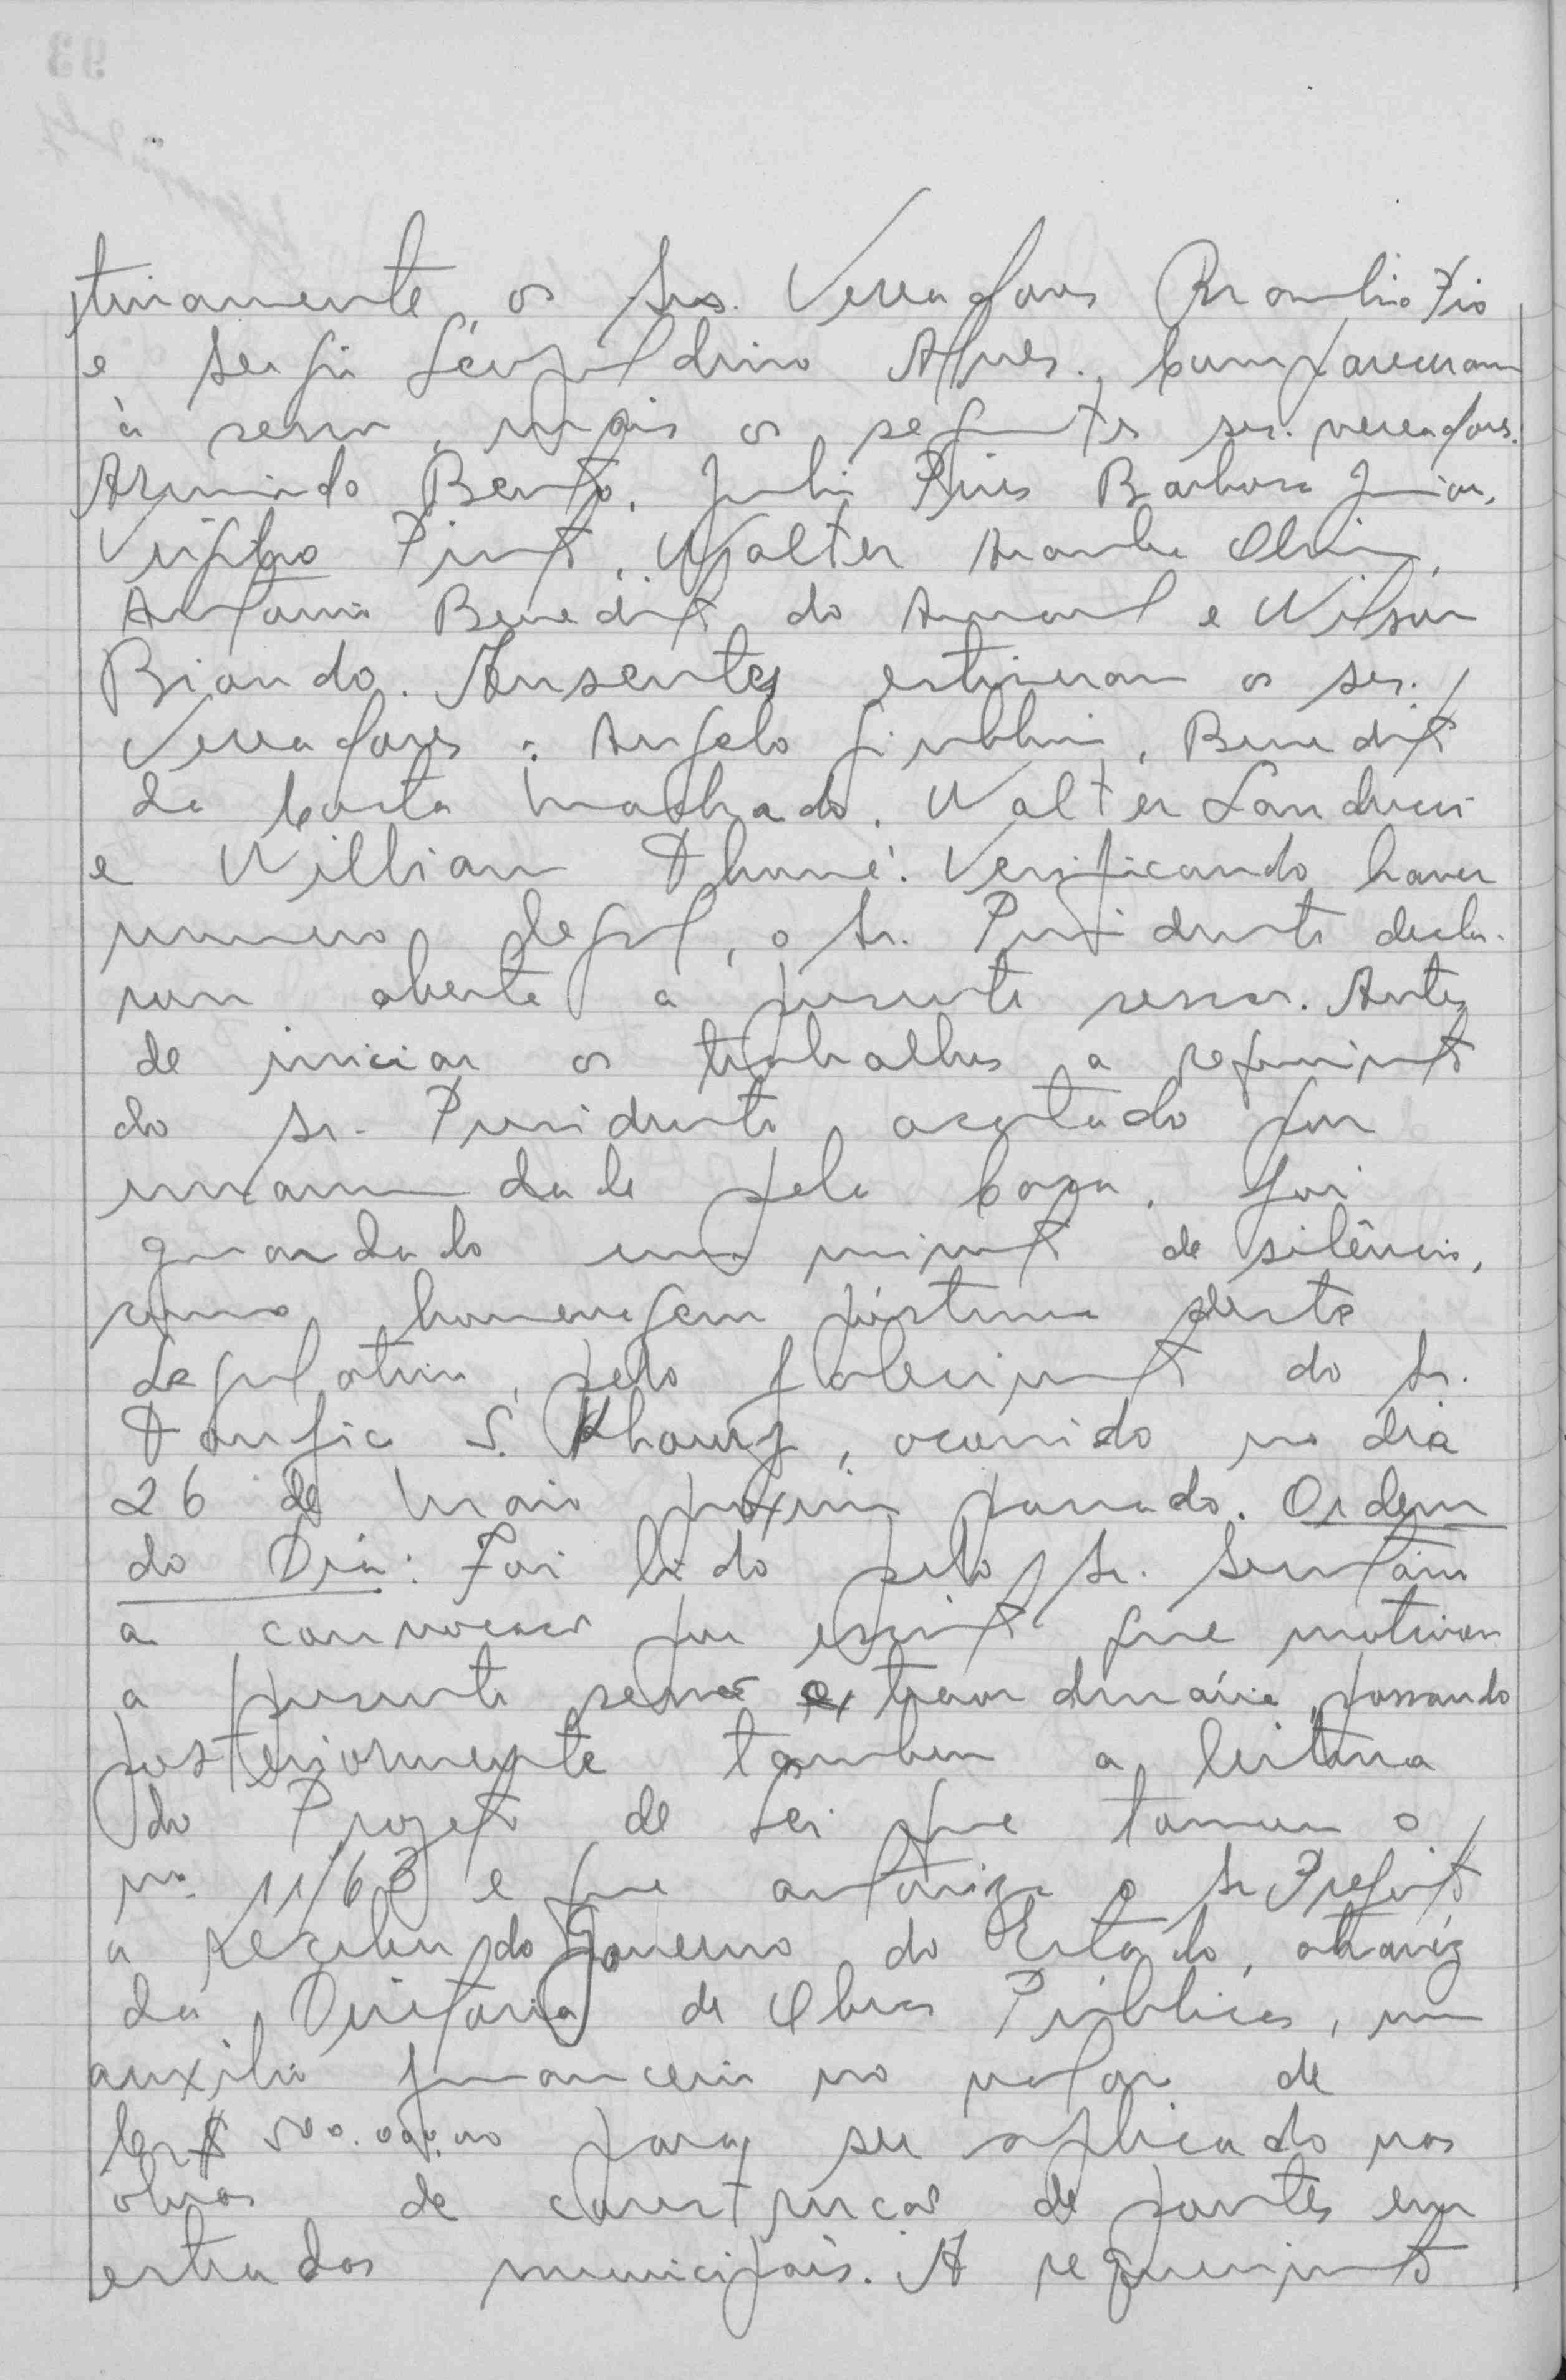 tivamente, os Srs. Vereadores
e Sergio Leopoldino Alves. Compareceram
à sessão, mais os seguintes srs. vereadores.
Armindo Bento, Julio Pires Barbosa Junior,
Virgilio Pinto, Walter Aranha
Antonio Benedito do Amaral e Wilson
Biondo. Ausentes estiveram os srs.
Vereadores: Angelo, Benedito
da Costa Machado, Walter Landucci
e Willian Thomé. Verificando haver
numero legal, o Sr. Presidente decla-
rou aberta a presente sessão. Antes
de iniciar os trabalhos a requerimento
do Sr. Presidente aceitado por
unanimidade pela Casa, foi
guardado um minuto de silêncio,
como homenagem póstuma deste
Legislativo, pelo falecimento do Sr.
Taufic S. Khoury, ocorrido no dia
26 de Maio próximo passado. Ordem
do Dia: Foi lido pelo Sr. Secretário
a convocação por escrito que motivou
a presente sessão extraordinária, passando
posteriormente tambem a leitura
do Projeto de Lei que tomou o
nº 11/63 e que autoriza o Sr Prefeito
a receber do Governo do Estado, atravéz
da Diretoria de Obras Públicas, um
auxilio financeiro no valor de
Cr$ 500.000,00 para ser aplicado nas
obras de construção de pontes em
estradas municipais. A requerimento